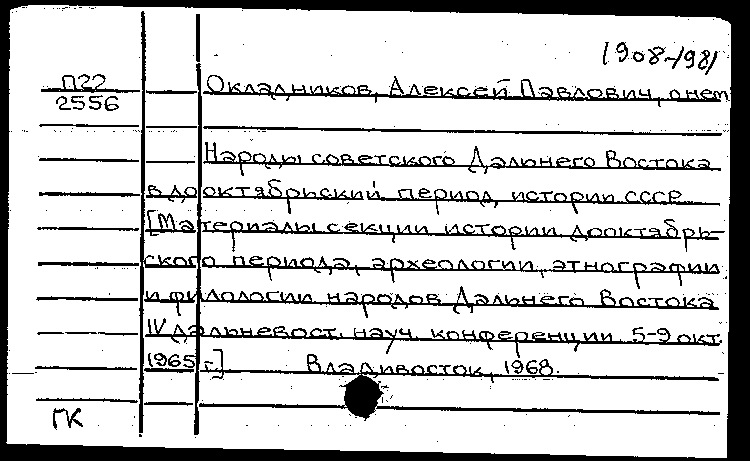 1908-1981
П22
2556
Окладников, Алексей Павлович,
Народы советского Дальнего Востока
в дооктябрьский период истории СССР
[Материалы секции истории дооктябрь-
ского периода, археологии, этнографии
и филологии народов Дальнего Востока
IV дальневост. науч. конференции. 5-9 окт.
1965 г.] Владивосток, 1968.
ГК